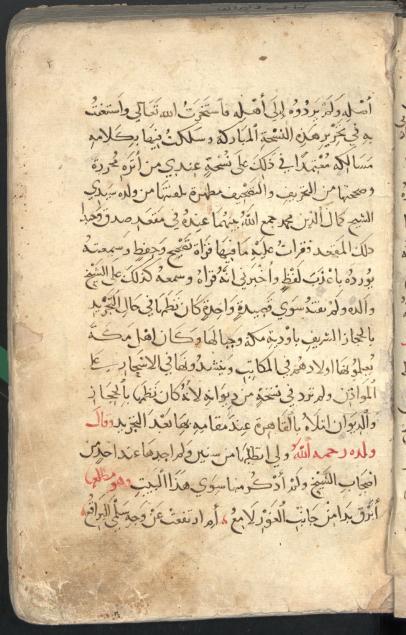 أصله ولم يردوه إلى أهله فاستخرت الله تعالى واستعنت
به في تحرير هذه النسخة المباركة وسلكت فيها بكلامه
مسالكه معتمدا في ذلك على نسخة عندي من أثره محررة
وصحتها من التحريف والتصحيف مطهرة تلقيتها من ولده سيدي
الشيخ كمال الدين محمد جمع الله بينهما عنده في مقعد صدق وحبذا
ذلك المقعد وقرأت عليه ما فيها قراءة تصحيح وحفظ وسمعته
يورده باعذب لفظ وأخبرني أنه قرأه وسمعه كذلك على الشيخ
والده ولم يفته سوى قصيدة واحدة كان نظمها في حال التجريد
بالحجاز الشريف بأودية مكة وجبالها وكان أهل مكة
يعلمونها أولادهم في المكاتب وينشدونها في الاسحار على
المواذن ولم ترد في نسخة من ديوانه لأنه كان نظمها بالحجاز
والديوان املاه بالقاهرة عند مقامه بها بعد التجريد وقال
ولده رحمه الله ولي اتطلبها من سنين ولم اجدها عند احد من
اصحاب الشيخ ولم أذكر منها سوى هذا البيت وهو مطلعها
أبرق بدا من جانب الغور لامع ، أم ارتفعت عن وجه سلمى البراقع ،